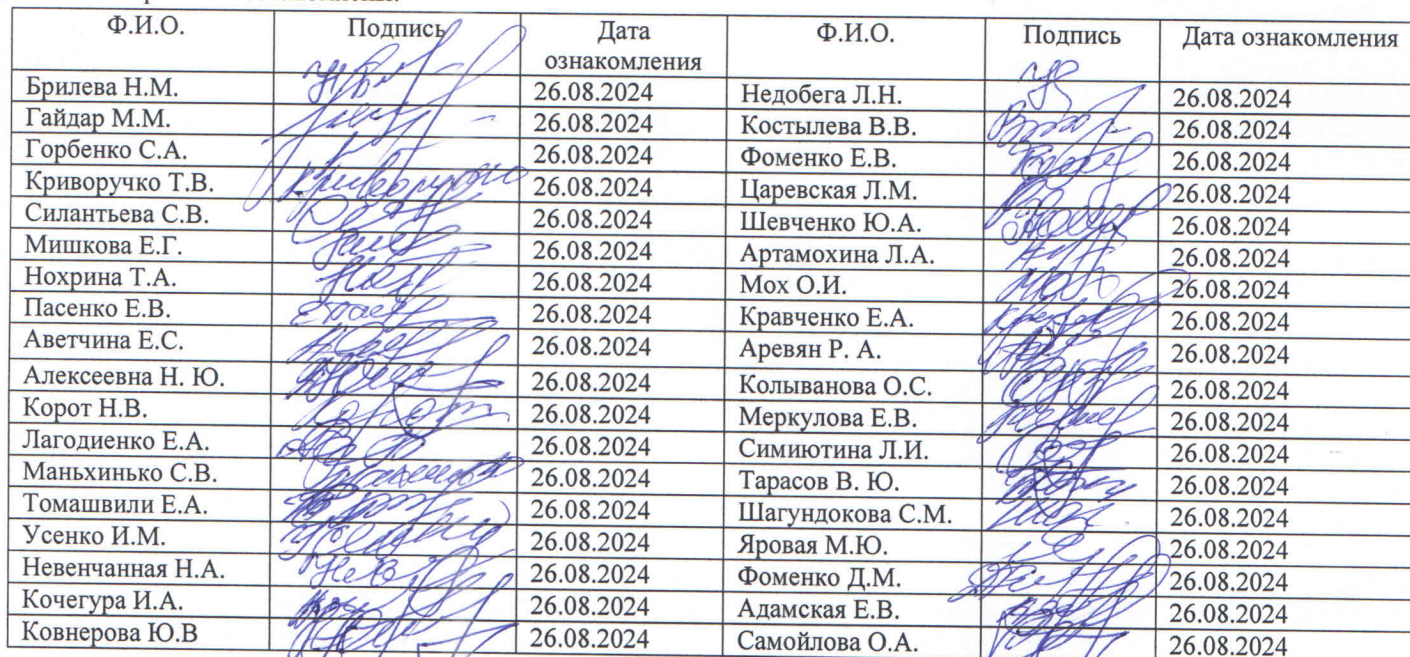 Ф.И.О. Подпись Дата ознакомления Ф.И.О. Подпись Дата ознакомления
Брилева Н.М. 26.08.2024 Недобега Л.Н. 26.08.2024
Гайдар М.М. 26.08.2024 Костылева В.В. 26.08.2024
Горбенко С.А. 26.08.2024 Фоменко Е.В. 26.08.2024
Криворучко Т.В. 26.08.2024 Царевская Л.М. 26.08.2024
Силантьева С.В. 26.08.2024 Шевченко Ю.А. 26.08.2024
Мишкова Е.Г. 26.08.2024 Артамохина Л.А. 26.08.2024
Нохрина Т.А. 26.08.2024 Мох О.И. 26.08.2024
Пасенко Е.В. 26.08.2024 Кравченко Е.А. 26.08.2024
Аветчина Е.С. 26.08.2024 Аревян Р. А. 26.08.2024
Алексеевна Н. Ю. 26.08.2024 Колыванова О.С. 26.08.2024
Корот Н.В. 26.08.2024 Меркулова Е.В. 26.08.2024
Лагодиенко Е.А. 26.08.2024 Симиютина Л.И. 26.08.2024
Маньхинько С.В. 26.08.2024 Тарасов В. Ю. 26.08.2024
Томашвили Е.А. 26.08.2024 Шагундокова С.М. 26.08.2024
Усенко И.М. 26.08.2024 Яровая М.Ю. 26.08.2024
Невенчанная Н.А. 26.08.2024 Фоменко Д.М. 26.08.2024
Кочегура И.А. 26.08.2024 Адамская Е.В. 26.08.2024
Ковнерова Ю.В 26.08.2024 Самойлова О.А. 26.08.2024